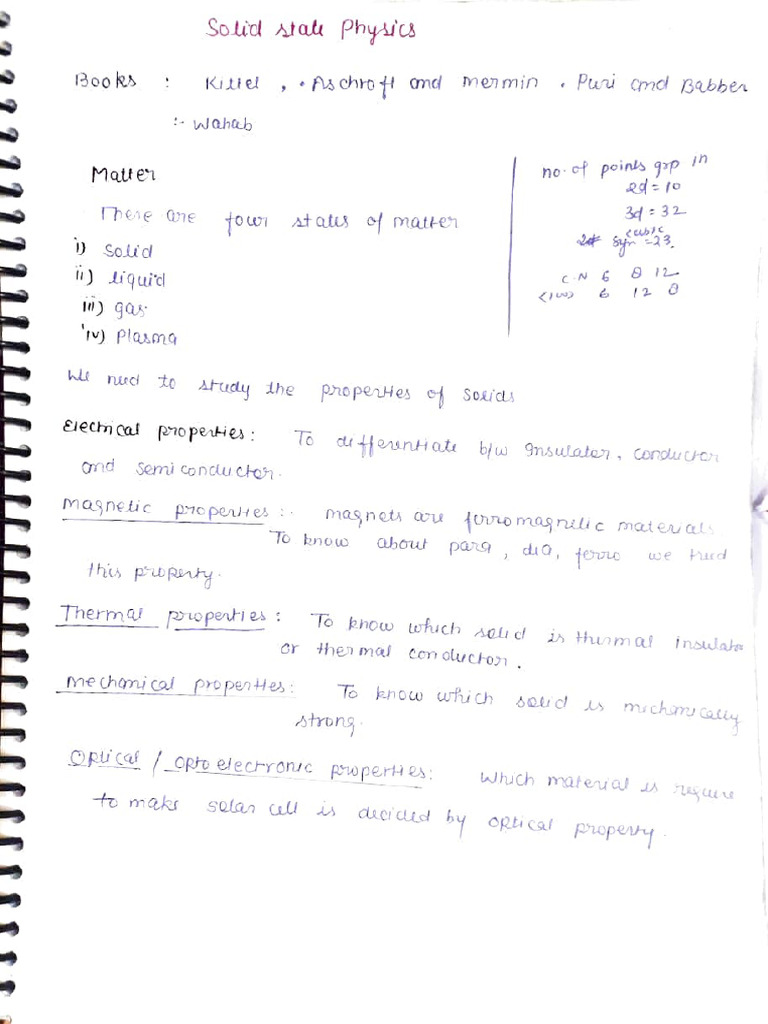 Solid state Physics
Books : Kittel , • Aschroft and Mermin • Puri and Babber
:- Wahab
Matter
There are four states of matter
i) solid
ii) liquid
iii) gas
iv) Plasma
no. of points grp in
2d = 10
3d = 32
cubic
sym = 23.
C.N 6 8 12
<100> 6 12 8
We need to study the properties of solids
Electrical properties : To differentiate b/w Insulator, conductor
and semiconductor.
Magnetic properties :- magnets are ferromagnetic materials
To know about para, dia, ferro we need
this property.
Thermal properties : To know which solid is thermal insulator
or thermal conductor.
Mechanical properties : To know which solid is mechanically
strong.
Optical / Opto electronic properties : Which material is require
to make solar cell is decided by optical property.